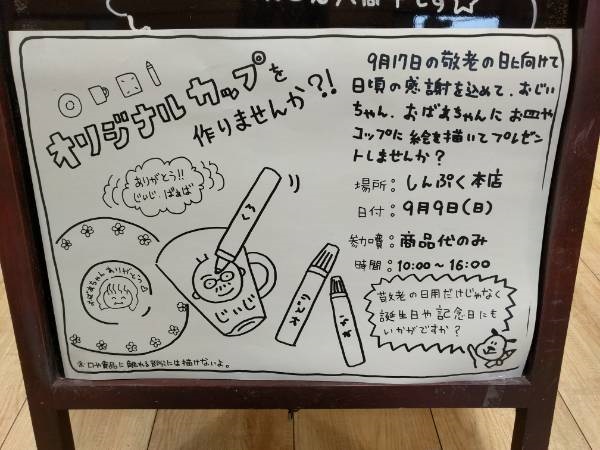 オリジナルカップを
作りませんか?!
9月17日の敬老の日に向けて
日頃の感謝を込めて、おじい
ちゃん、おばあちゃんに お皿や
コップに 絵を描いてプレゼン
トしませんか？
場所：しんぷく本店
日付：9月9日(日)
参加費：商品代のみ
時間：10:00～16:00
ありがとう!!
じぃじ・ばぁば
おばあちゃん ありがとう
じぃじ
敬老の日用だけじゃなく
誕生日や記念日にも
いかがですか？